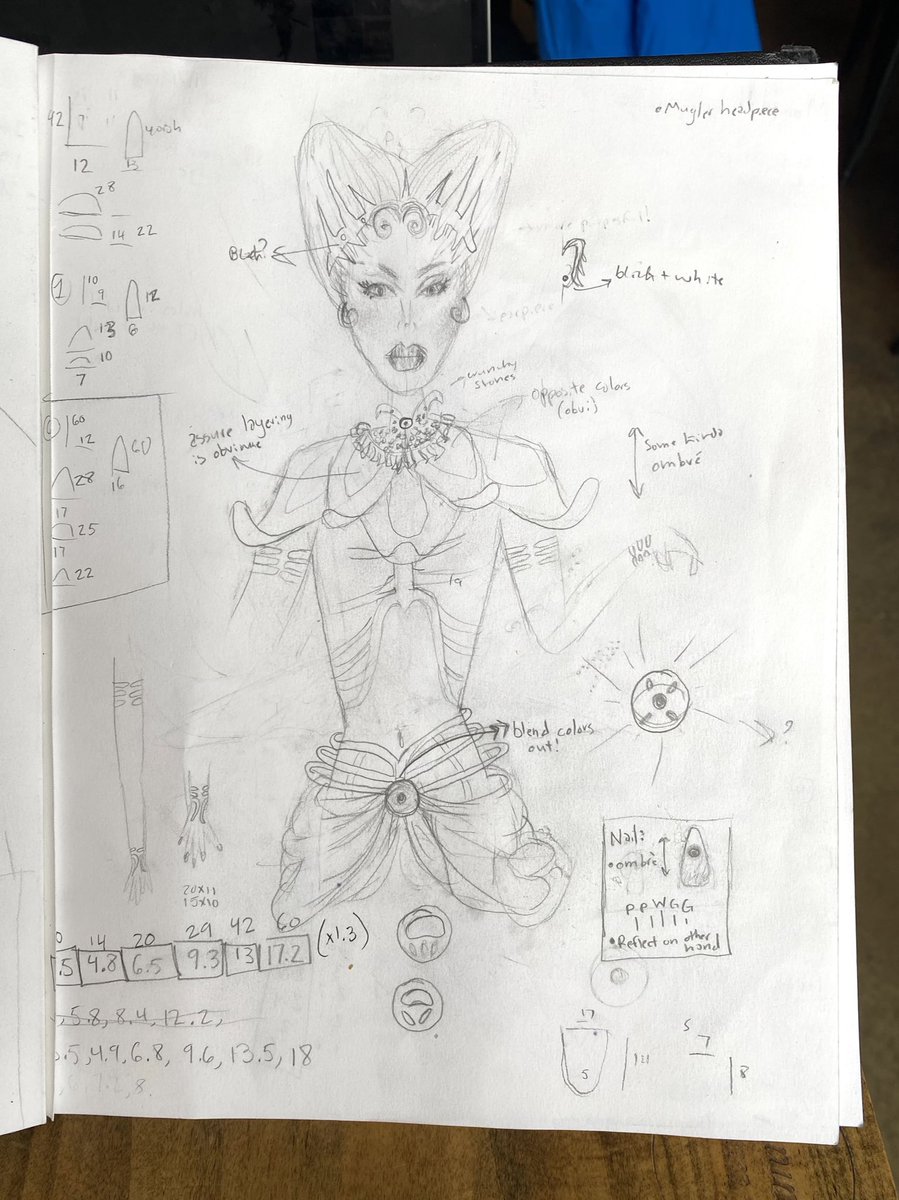 • Mugler headpiece
42
7
12
40ish
13
28
14 22
Black?
black + white
1
10
9
12
6
13
10
7
crunchy
stones
opposite colors
(obvi)
assure layering
is obvious
some kinda
ombré
60
12
60
16
28
17
25
17
22
blend colors
out!
?
Nail?
• ombré
P P W G G
• Reflect on other
hand
20x11
15x10
14 20 29 42 60
.5 4.8 6.5 9.3 13 17.2 (x1.3)
5.8, 8.4, 12.2,
.5, 4.9, 6.8, 9.6, 13.5, 18
17
5
5
7
8